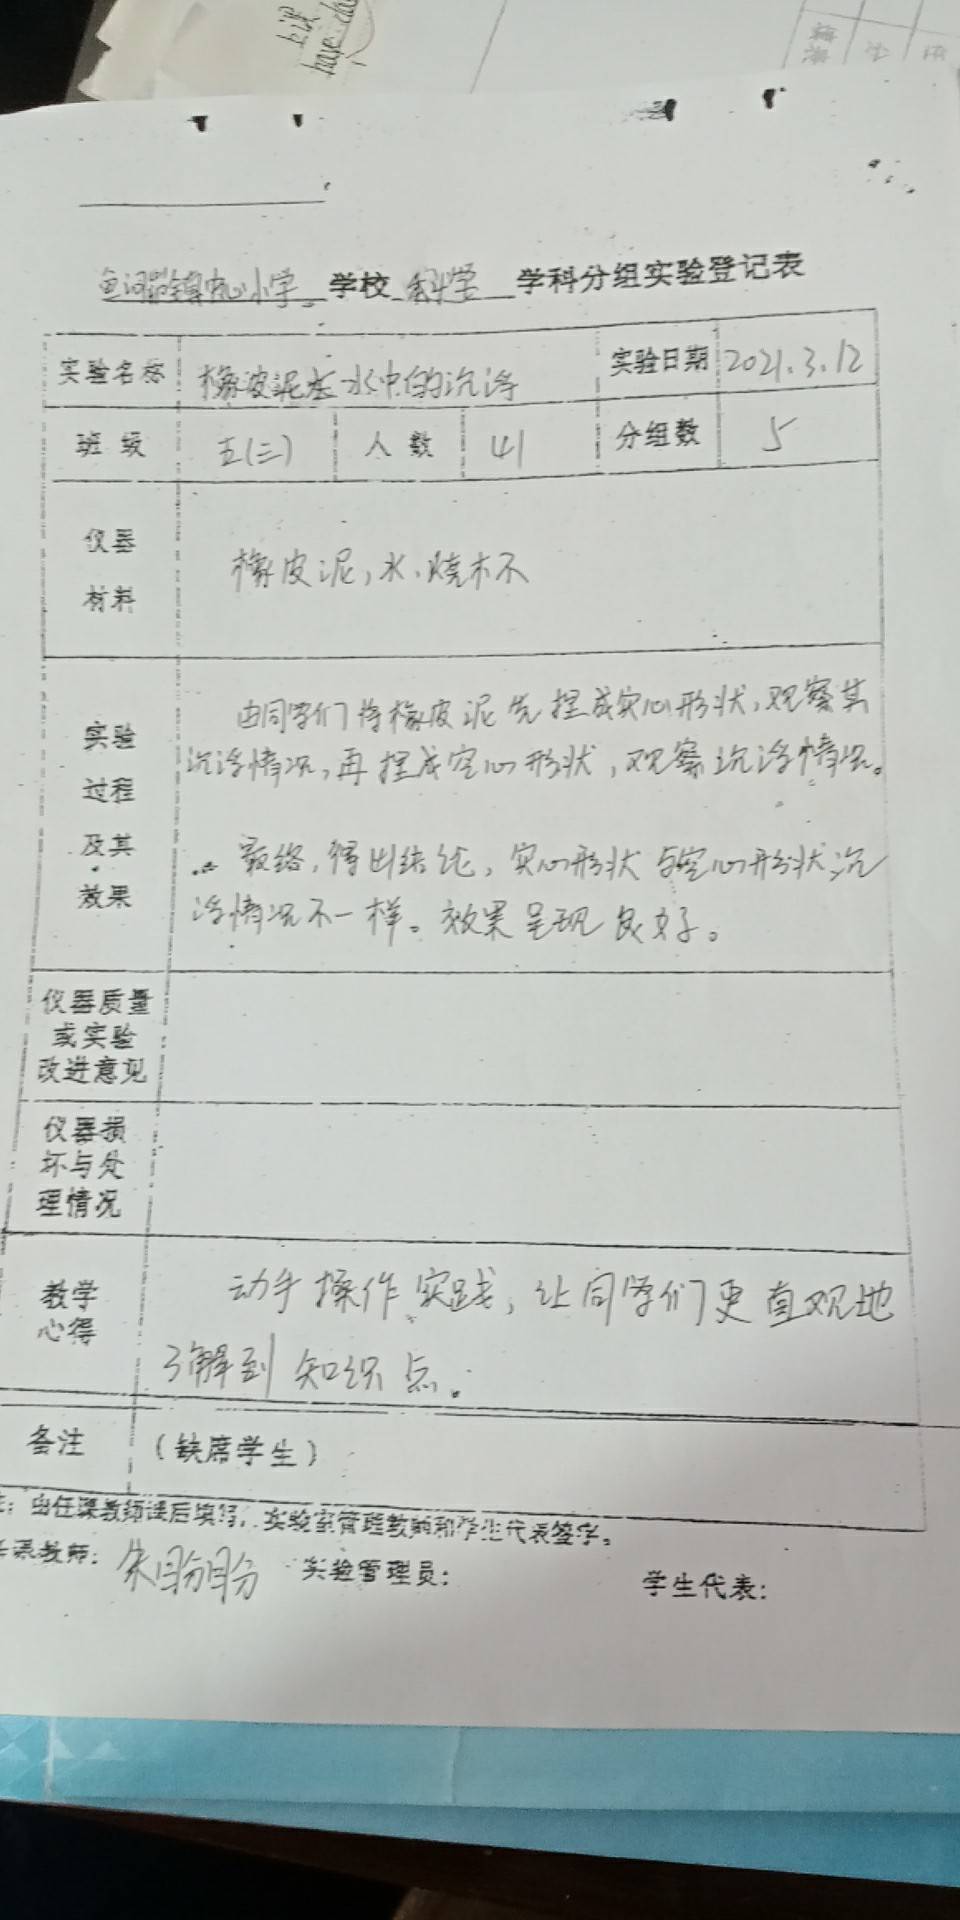 上课
have cla
中心小学 学校 科学 学科分组实验登记表
实验名称 橡皮泥在水中的沉浮 实验日期 2021.3.12
班级 五(二) 人数 41 分组数 5
仪器
材料
橡皮泥,水,烧杯
由同学们将橡皮泥先捏成实心形状,观察其
沉浮情况,再捏成空心形状,观察沉浮情况。
最终,得出结论,实心形状与空心形状沉
浮情况不一样。效果呈现良好。
实验
过程
及其
效果
仪器质量
或实验
改进意见
仪器损
坏与处
理情况
教学
心得
动手操作实践,让同学们更直观地
了解到知识点。
备注 (缺席学生)
:由任课教师课后填写,实验室管理教师和学生代表签字。
课教师: 朱盼盼 实验管理员: 学生代表: